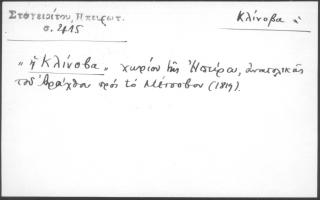 Στογειρίτου, Ηπειρωτ.
σ. 215
Κλίνοβα ἡ
„ ἡ Κλίνοβα „ χωρίον τῆς Ἠπείρου, ἀνατολικῶς
τοῦ Ἀράχθου πρὸς τὸ Μέτσοβον (1819).